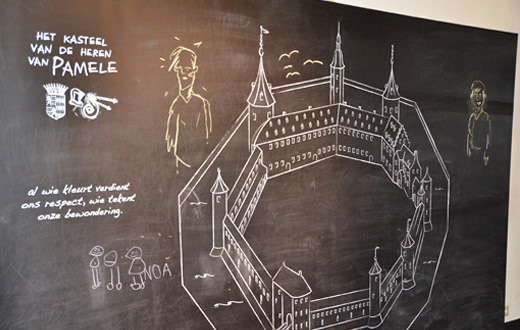 HET KASTEEL
VAN DE HEREN
VAN PAMELE
al wie kleurt verdient
ons respect, wie tekent
onze bewondering.
NOA